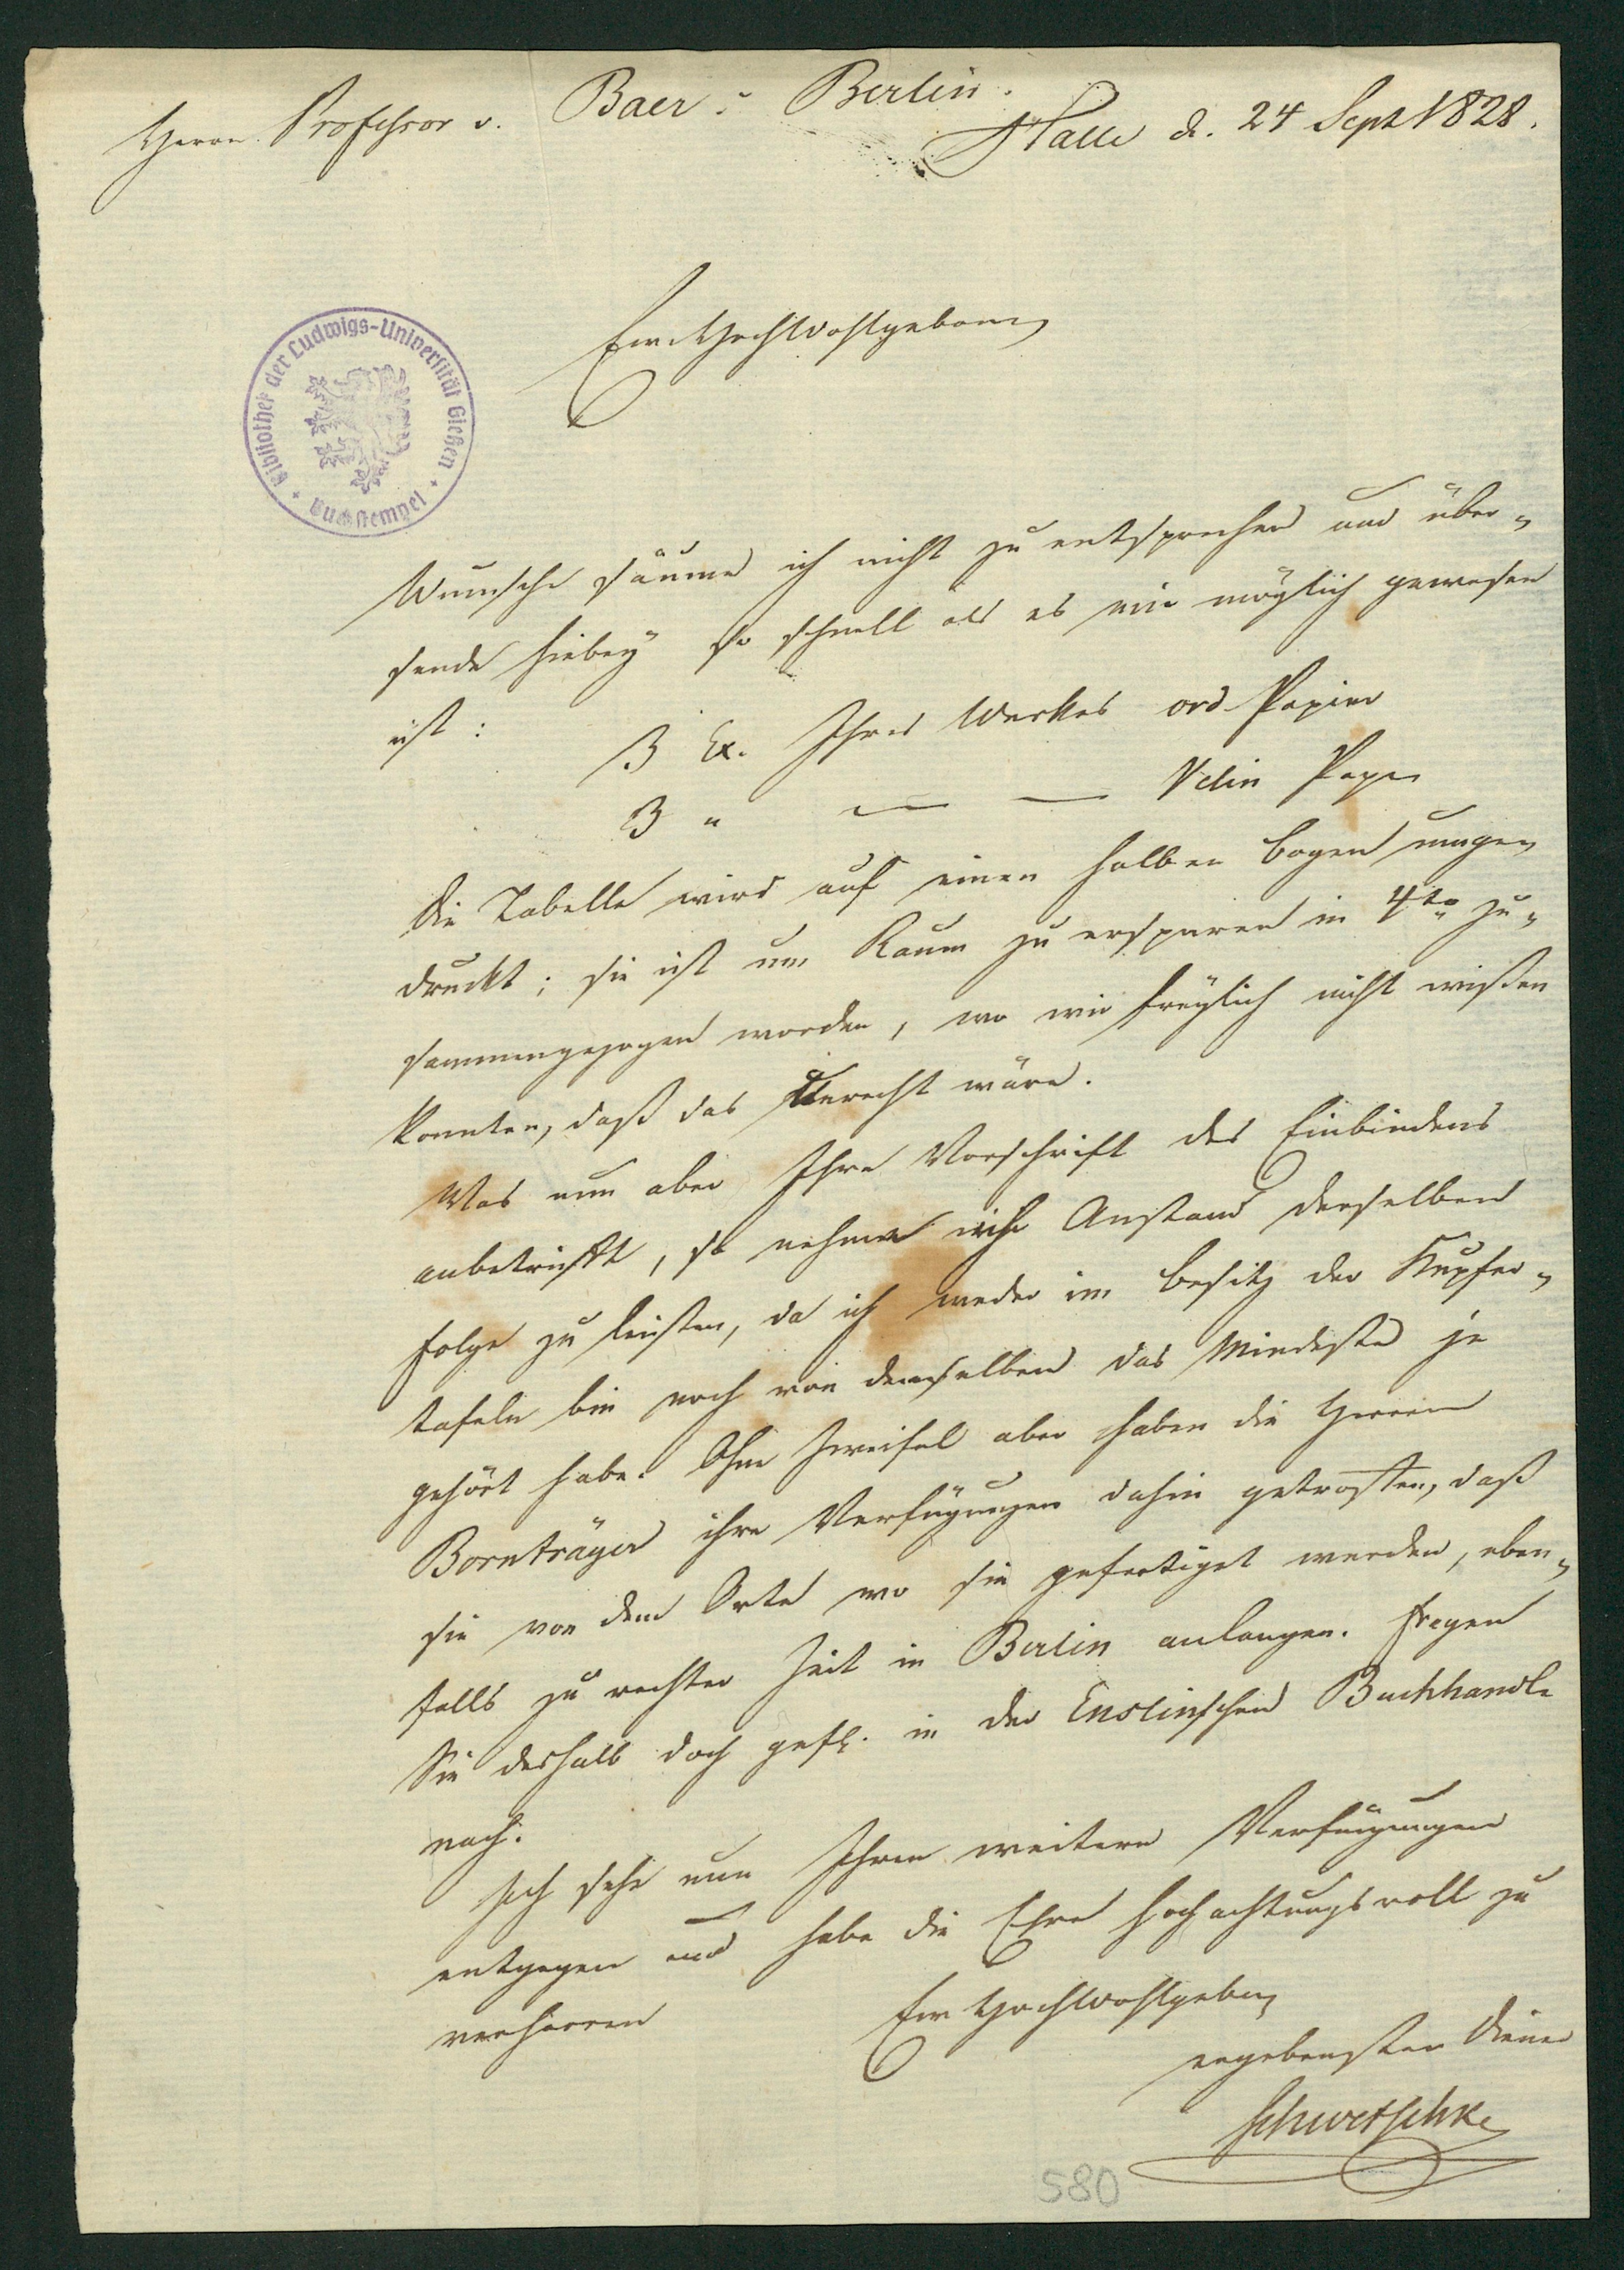 Herrn Professor v. Baer - Berlin.
Halle d. 24 Sept 1828.
Bibliothek der Ludwigs-Universität Gießen
Buchstempel
Ew. Hochwohlgeboren
Wunsche säume ich nicht zu entsprechen und über-
sende hiebey so schnell als es mir möglich gewesen
ist:
3 Ex. Ihres Werkes ord. Papier
3 " — — Velin Papier
Die Tabelle wird auf einen halben Bogen umge-
druckt; sie ist um Raum zu ersparen in 4to zu-
sammengezogen worden, wo wir freylich nicht wißen
konnten, daß das Unrecht wäre.
Was nun aber Ihre Vorschrift des Einbindens
anbetrifft, so nehme ich Anstand derselben
Folge zu leisten, da ich weder im Besitz der Kupfer-
tafeln bin noch von denselben das Mindeste je
gehört habe. Ohne Zweifel aber haben die Herren
Bornträger ihre Verfügungen dahin getroffen, daß
sie von dem Orte wo sie gefertiget werden, eben-
falls zu rechter Zeit in Berlin anlangen. Fragen
Sie deshalb doch gefl. in der Enslinschen Buchhandl.
nach.
Ich sehe nun Ihren weitern Verfügungen
entgegen und habe die Ehre hochachtungsvoll zu
verharren
Ew Hochwohlgeb.
ergebenster Diener
Schwetschke
580